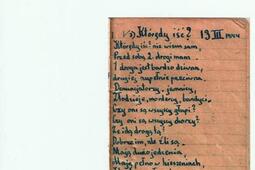 3) Którędy iść? 13 III 1944
Którędy iść? nie wiem sam,
Przed sobą 2 drogi mam
1 droga jest bardzo dziwna,
drugiej zupełnie przeciwna.
Denuncjatorzy, jawnicy,
Złodzieje, mordercy, bandyci.
Czy oni są wszyscy głupi?
Czy oni są wszyscy chorzy?
Że idą drogą tą?
Dobrze im, ale źli są.
Mają dużo jedzenia,
Mają pełno w kieszeniach,